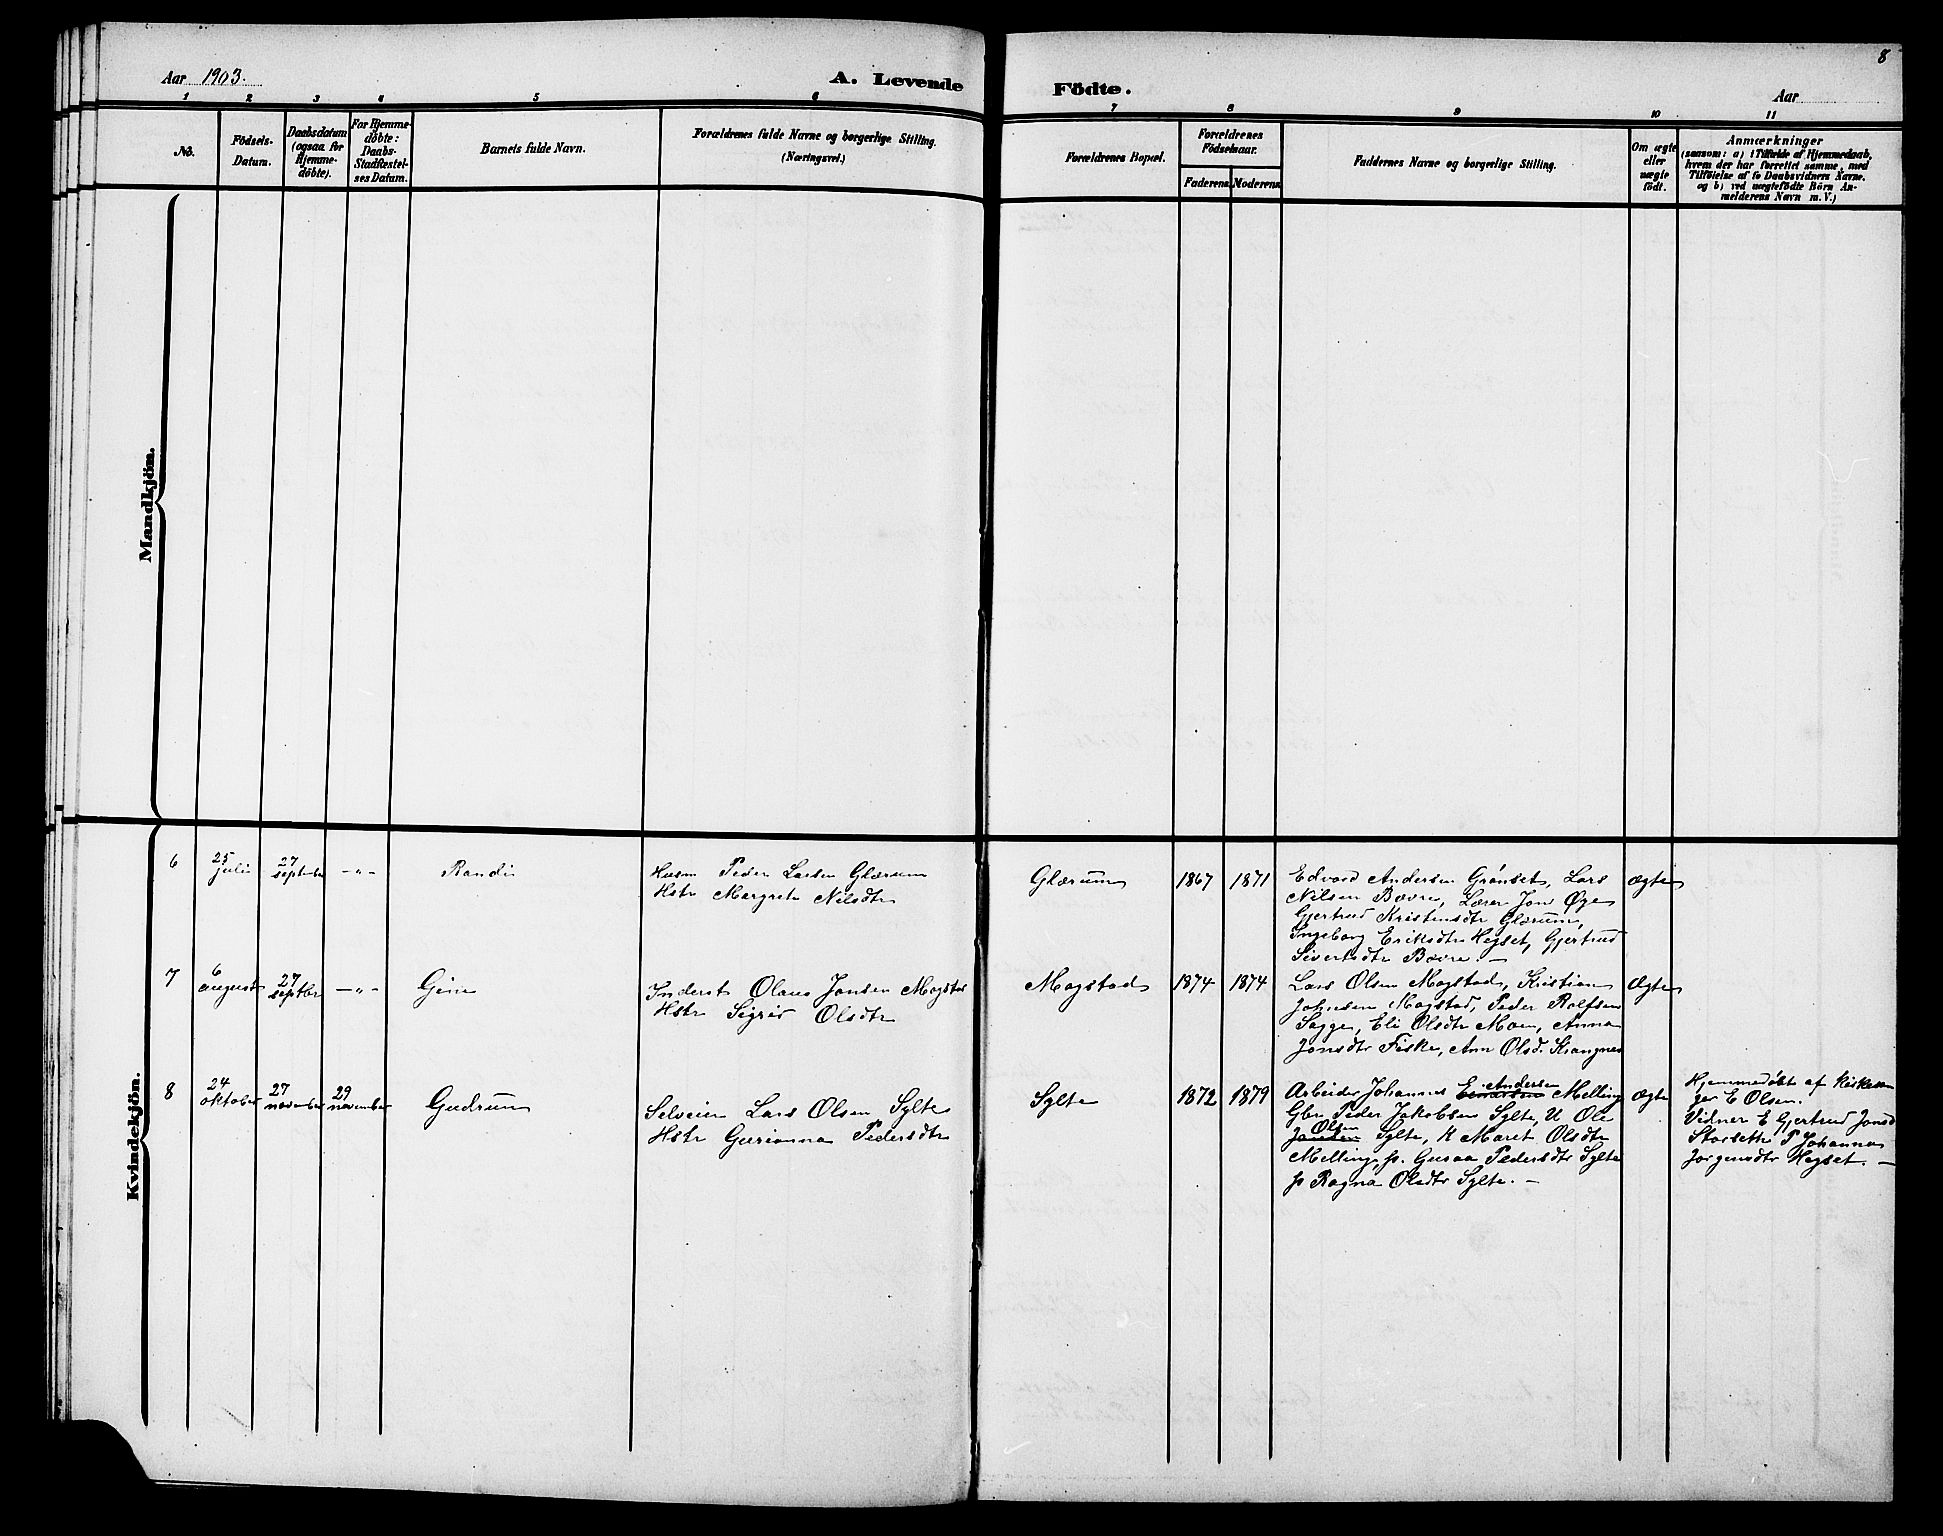 8
Aar 1903.
A. Levende
Födte.
Aar
1 2 3 4 5 6
7 8 9 10 11
No.
Födsels-
Datum.
Daabsdatum
(ogsaa for
Hjemme-
döbte).
For Hjemme-
döbte:
Daabs-
Stadfæstel-
ses Datum.
Barnets fulde Navn.
Forældrenes fulde Navne og borgerlige Stilling.
(Næringsvei.)
Forældrenes Bopæl.
Forældrenes
Födselsaar.
Faderens.
Moderens.
Faddernes Navne og borgerlige Stilling.
Om ægte
eller
uægte
födt.
Anmærkninger
(saasom: a) i Tilfælde af Hjemmedaab,
hvem der har forrettet samme, med
Tilföielse af to Daabsvidners Navne.
og b) ved uægtefödte Börn An-
melderens Navn m. V.)
Mandkjön.
Kvindekjön.
6
25
juli
27
septbr
-"-
Randi
Husm Peder Larsen Glærum
Hstr Margrete Nilsdtr
Glærum
1867
1871
Edvard Andersen Grønset, Lars
Nilsen Bævre, Lærer Jon Øye
Gjertrud Kristensdtr Glærum,
Ingeborg Eriksdtr Hegset, Gjertrud
Sivertsdtr Bævre. -
Ægte
7
6
august
27
septbr
-"-
Gine
Inderst Olaus Jonsen Mogstad
Hstr Sigrid Olsdtr
Mogstad
1874
1874
Lars Olsen Mogstad, Kristian
Johnsen Mogstad, Peder Rolfsen
Sogge, Eli Olsdtr Moen, Anna
Jonsdtr Fiske, Ann Olsd. Krangnes
Ægte
8
24
oktober
27
november
29
november
Gudrun
Selveier Lars Olsen Sylte
Hstr Gurianna Pedersdtr
Sylte
1872
1879
Andersen
Arbeider Johannes Einarsen Melling
Gbr Peder Jakobsen Sylte, U Ole
Olsen
Jonsen Sylte, K Maret Olsdtr
Melling, p. Guraa Pedersdtr Sylte
p Ragna Olsdtr Sylte. -
Ægte
Hjemmedøbt af Kirkesan
ger E Olsen.
Vidner E Gjertrud Jonsd
Storseth P Johanna
Jørgensdtr Hegset. -